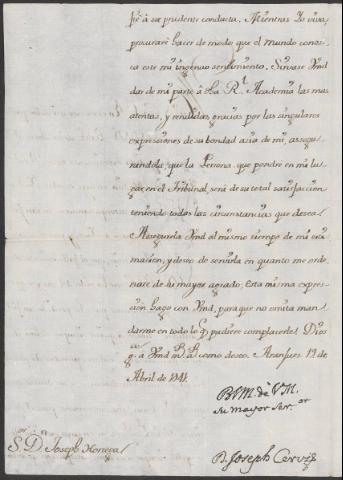 pre à su prudente conducta. Mientras Yo viva
procuraré hacer de modo, que el mundo conos-
ca este mi ingenuo sentimiento. Sirvase Vmd
dar de mi parte à la Rl. Academia las mas
atentas, y rendidas gracias por las singulares
expressiones de su bondad acia de mi, assegu-
randola, que la Persona que pondré en mi lu-
gar en el Tribunal, será de su total satisfaccion
teniendo todas las circunstancias que desea.
Assegurela Vmd al mismo tiempo de mi esti-
macion, y deseo de servirla en quanto me orde-
nare de su mayor agrado. Esta misma expres-
sion hago con Vmd, para que no omita man-
darme en todo lo q. pudiere complacerle. Dios
g. à Vmd m. a. como deseo. Aranjuez 12 de
Abril de 1741.
BLM. de V.M.
su mayor Ser.or
D. Joseph
Sr. D. Joseph